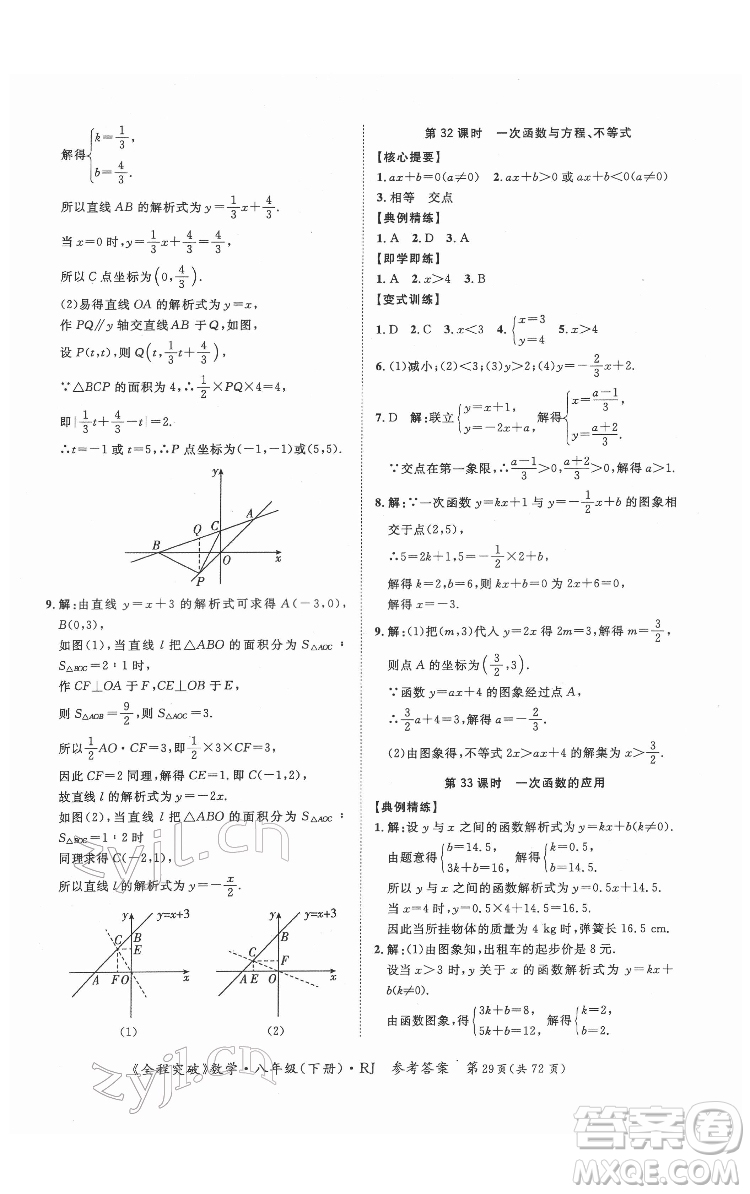 解得{k=1/3, b=4/3.
所以直线 AB 的解析式为 y=1/3x+4/3.
当 x=0 时,y=1/3x+4/3=4/3,
所以 C 点坐标为(0,4/3).
(2)易得直线 OA 的解析式为 y=x,
作 PQ∥y 轴交直线 AB 于 Q,如图,
设 P(t,t),则 Q(t,1/3t+4/3),
∵△BCP 的面积为 4,∴1/2×PQ×4=4,
即|1/3t+4/3-t|=2.
∴t=-1 或 t=5,∴P 点坐标为(-1,-1)或(5,5).
y
A
C
Q
B
O
x
P
9.解:由直线 y=x+3 的解析式可求得 A(-3,0),
B(0,3),
如图(1),当直线 l 把△ABO 的面积分为 S△AOC∶
S△BOC=2∶1 时,
作 CF⊥OA 于 F,CE⊥OB 于 E,
则 S△AOB=9/2,则 S△AOC=3.
所以1/2AO·CF=3,即1/2×3×CF=3.
因此 CF=2 同理,解得 CE=1.所以 C(-1,2).
故直线 l 的解析式为 y=-2x.
如图(2),当直线 l 把△ABO 的面积分为 S△AOC∶
S△BOC=1∶2 时
同理求得 C(-2,1),
所以直线 l 的解析式为 y=-x/2.
y y=x+3
B
C
E
A F O x
(1)
y y=x+3
B
C
F
A E O x
(2)
第 32 课时 一次函数与方程、不等式
【核心提要】
1.ax+b=0(a≠0) 2.ax+b>0 或 ax+b<0(a≠0)
3.相等 交点
【典例精练】
1.A 2.D 3.A
【即学即练】
1.A 2.x>4 3.B
【变式训练】
1.D 2.C 3.x<3 4.{x=3 y=4 5.x>4
6.(1)减小;(2)<3;(3)y=-2/3x+2.
7.D 解:联立{y=x+1, y=-2x+a, 解得{x=a-1/3, y=a+2/3.
∵交点在第一象限,∴a-1/3>0,a+2/3>0.∴a>1.
8.解:∵一次函数 y=kx+1 与 y=-1/2x+b 的图象相
交于点(2,5),
∴5=2k+1,5=-1/2×2+b,
解得 k=2,b=6,
解得 k=-3.
9.解:(1)把(m,3)代入 y=2x 得 2m=3,m=3/2,
则点 A 的坐标为(3/2,3).
∵函数 y=ax+4 的图象经过点 A,
∴3/2a+4=3,解得 a=-2/3.
(2)由图象得,不等式 2x>ax+4 的解集为 x>3/2.
第 33 课时 一次函数的应用
【典例精练】
1.解:设 y 与 x 之间的函数解析式为 y=kx+b(k≠0).
由题意得{b=14.5, 3k+b=16, 解得{k=0.5, b=14.5.
所以 y 与 x 之间的函数解析式为 y=0.5x+14.5.
因此当所挂物体的质量为 4 kg 时,弹簧长 16.5 cm.
2.解:(1)由图象知,出租车的起步价是 8 元.
设当 x>3 时,y 关于 x 的函数解析式为 y=kx+
b(k≠0).
由函数图象,得{3k+b=8, 5k+b=12. 解得{k=2, b=2.
《全程突破》数学·八年级(下册)·RJ 参考答案 第 29 页(共 72 页)
zyjl.cn
zyjl.cn
答案圈
MXQE.COM